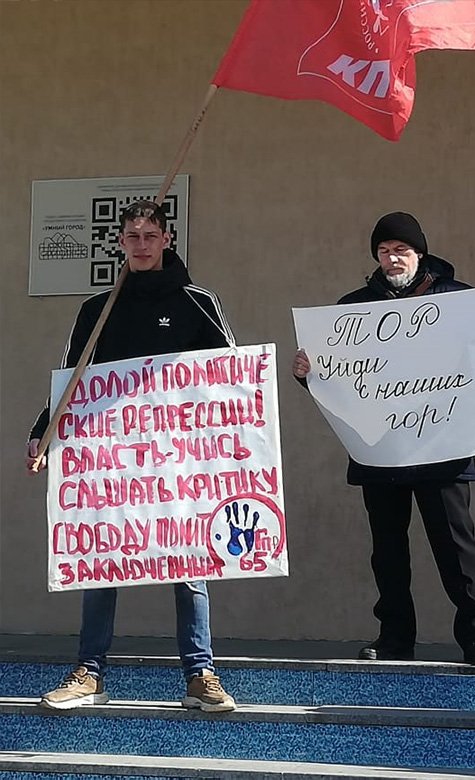 РОССИ
КП
«УМНЫЙ ГОРОД»
adidas
ДОЛОЙ ПОЛИТИЧЕ
СКИЕ РЕПРЕССИИ!
ВЛАСТЬ-УЧИСЬ
СЛЫШАТЬ КРИТИКУ
СВОБОДУ ПОЛИТ
ЗАКЛЮЧЕННЫМ
65
ТОР
Уйди
с наших
гор!